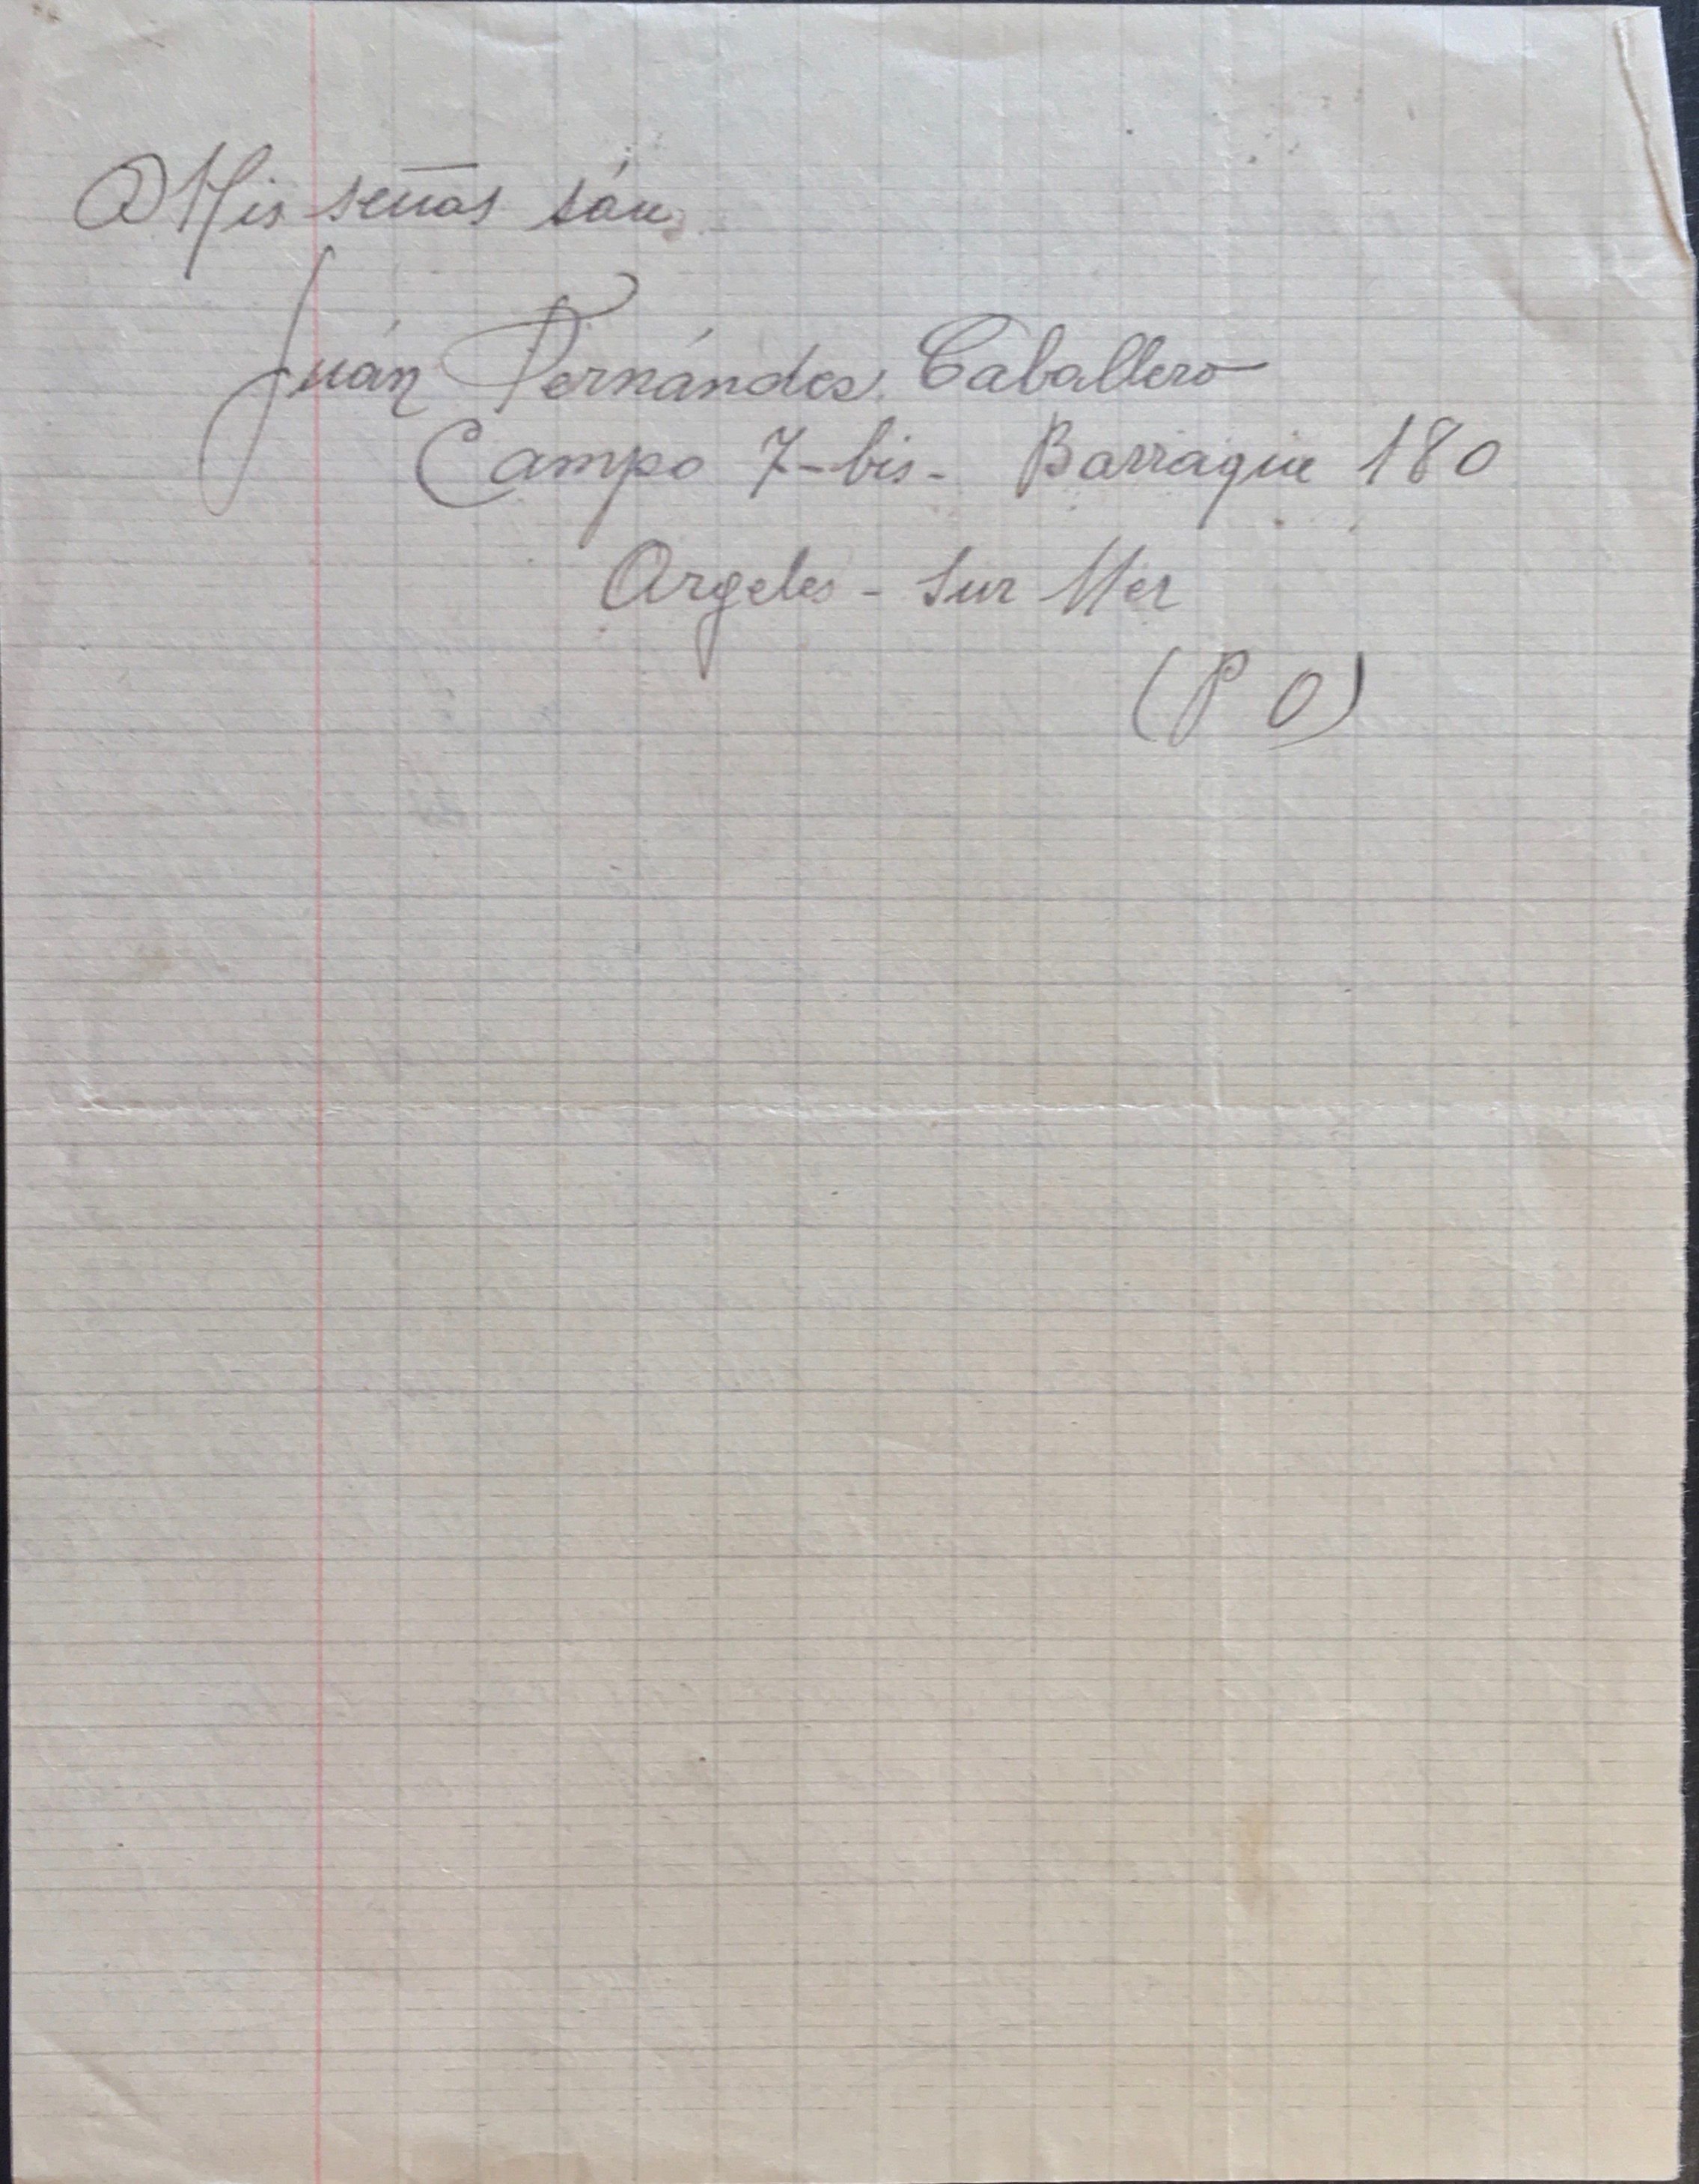 Mis señas són.
Juán Fernándes Caballero
Campo 7-bis- Barraque 180
Argeles - Sur Mer
(P O)